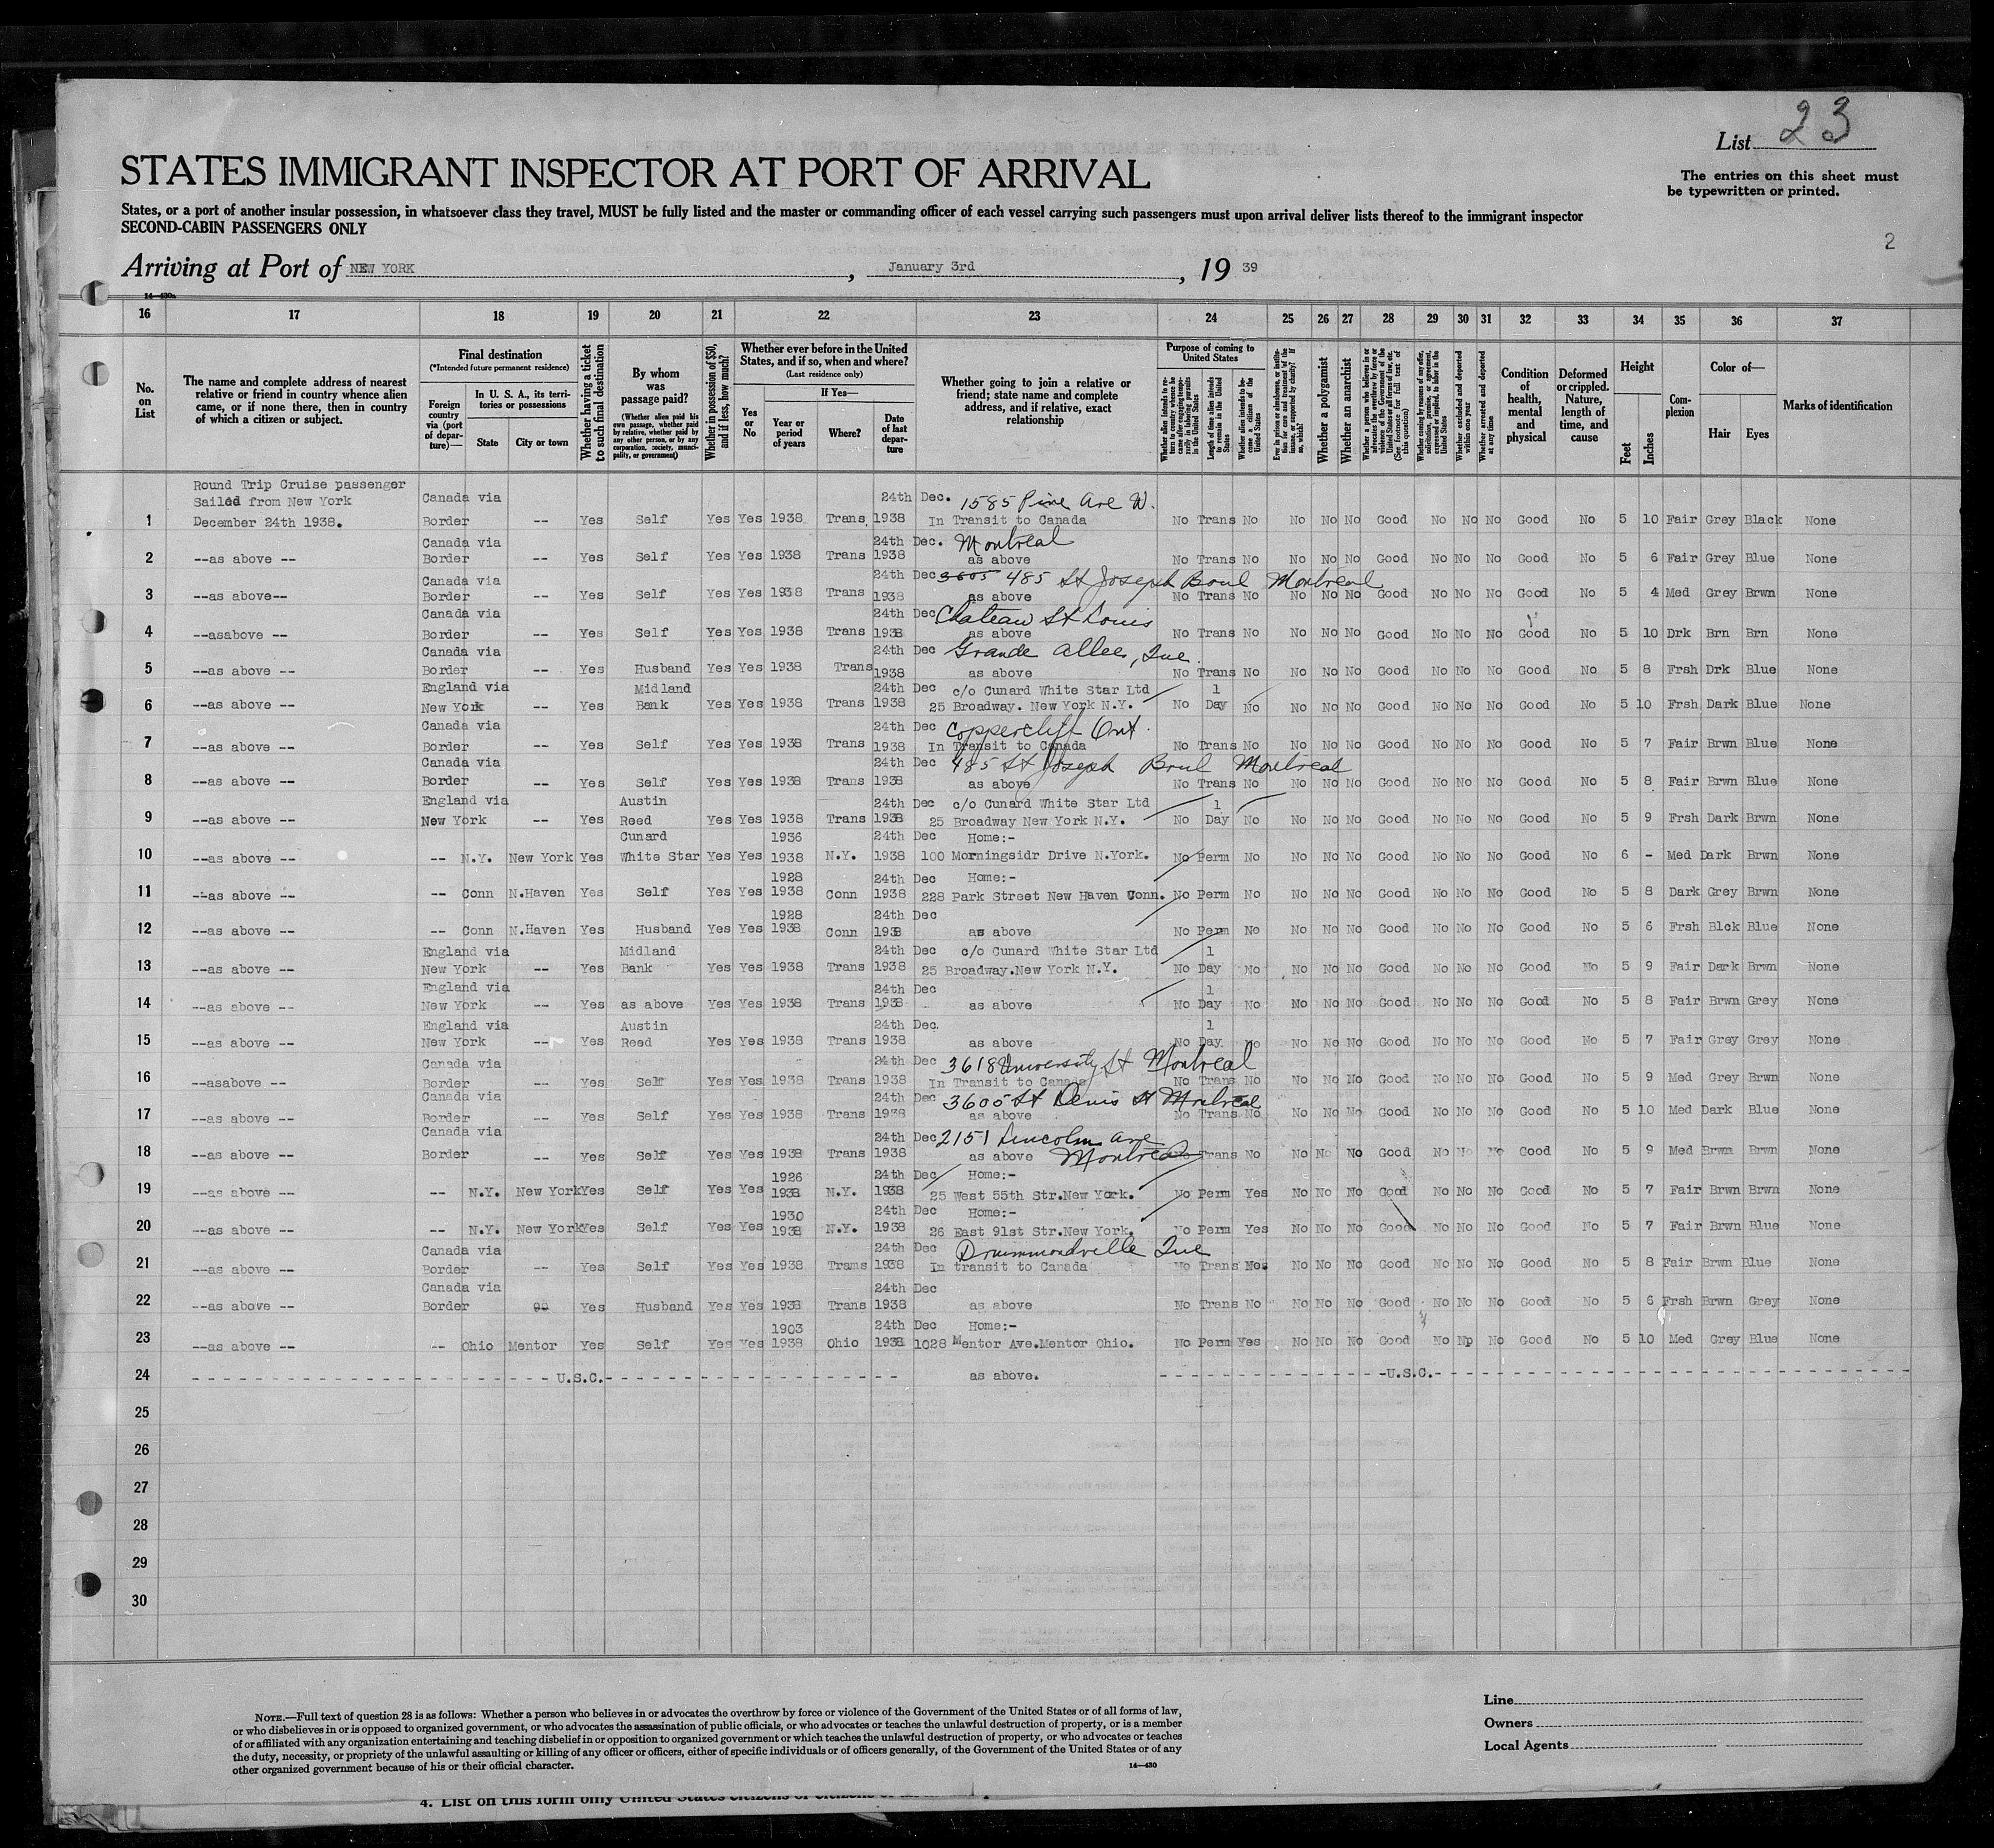 List 23
STATES IMMIGRANT INSPECTOR AT PORT OF ARRIVAL
The entries on this sheet must
be typewritten or printed.
States, or a port of another insular possession, in whatsoever class they travel, MUST be fully listed and the master or commanding officer of each vessel carrying such passengers must upon arrival deliver lists thereof to the immigrant inspector
SECOND-CABIN PASSENGERS ONLY
2
Arriving at Port of NEW YORK, January 3rd, 19 39
14—430a
16 17 18 19 20 21 22 23 24 25 26 27 28 29 30 31 32 33 34 35 36 37
No. on List
The name and complete address of nearest relative or friend in country whence alien came, or if none there, then in country of which a citizen or subject.
Final destination
(*Intended future permanent residence)
Foreign country via (port of departure)—
In U. S. A., its territories or possessions
State
City or town
Whether having a ticket to such final destination
By whom was passage paid?
(Whether alien paid his own passage, whether paid by relative, whether paid by any other person, or by any corporation, society, municipality, or government)
Whether in possession of $50, and if less, how much?
Whether ever before in the United States, and if so, when and where?
(Last residence only)
Yes or No
If Yes—
Year or period of years
Where?
Date of last departure
Whether going to join a relative or friend; state name and complete address, and if relative, exact relationship
Purpose of coming to United States
Length of time alien intends to remain in the United States
Whether alien intends to become a citizen of the United States
Whether a polygamist
Whether an anarchist
Whether excluded and deported within one year
Whether arrested and deported at any time
Condition of health, mental and physical
Deformed or crippled. Nature, length of time, and cause
Height
Feet
Inches
Complexion
Color of—
Hair
Eyes
Marks of identification
Round Trip Cruise passenger
Sailed from New York
Canada via 24th Dec. 1585 Pine Ave W.
1 December 24th 1938. Border -- Yes Self Yes Yes 1938 Trans 1938 In Transit to Canada No Trans No No No No Good No No No Good No 5 10 Fair Grey Black None
Canada via 24th Dec. Montreal
2 --as above -- Border -- Yes Self Yes Yes 1938 Trans 1938 as above No Trans No No No No Good No No No Good No 5 6 Fair Grey Blue None
Canada via 24th Dec 3605 485 St Joseph Boul Montreal
3 --as above-- Border -- Yes Self Yes Yes 1938 Trans 1938 as above No Trans No No No No Good No No No Good No 5 4 Med Grey Brwn None
Canada via 24th Dec Chateau St Louis
4 --asabove -- Border -- Yes Self Yes Yes 1938 Trans 1938 as above No Trans No No No No Good No No No Good No 5 10 Drk Brn Brn None
Canada via 24th Dec Grande Allee, Que.
5 --as above -- Border -- Yes Husband Yes Yes 1938 Trans 1938 as above No Trans No No No No Good No No No Good No 5 8 Frsh Drk Blue None
England via Midland 24th Dec c/o Cunard White Star Ltd 1
6 --as above -- New York -- Yes Bank Yes Yes 1938 Trans 1938 25 Broadway. New York N.Y. No Day No No No No Good No No No Good No 5 10 Frsh Dark Blue None
Canada via 24th Dec Coppercliff Ont.
7 --as above -- Border -- Yes Self Yes Yes 1938 Trans 1938 In Transit to Canada No Trans No No No No Good No No No Good No 5 7 Fair Brwn Blue None
Canada via 24th Dec 485 St Joseph Boul Montreal
8 --as above -- Border -- Yes Self Yes Yes 1938 Trans 1938 as above No Trans No No No No Good No No No Good No 5 8 Fair Brwn Blue None
England via Austin 24th Dec c/o Cunard White Star Ltd 1
9 --as above -- New York -- Yes Reed Yes Yes 1938 Trans 1938 25 Broadway New York N.Y. No Day No No No No Good No No No Good No 5 9 Frsh Dark Brwn None
Cunard 1936 24th Dec Home:-
10 --as above -- -- N.Y. New York Yes White Star Yes Yes 1938 N.Y. 1938 100 Morningsidr Drive N.York. No Perm No No No No Good No No No Good No 6 - Med Dark Brwn None
1928 24th Dec Home:-
11 --as above -- -- Conn N.Haven Yes Self Yes Yes 1938 Conn 1938 228 Park Street New Haven Conn. No Perm No No No No Good No No No Good No 5 8 Dark Grey Brwn None
1928 24th Dec
12 --as above -- -- Conn N.Haven Yes Husband Yes Yes 1938 Conn 1938 as above No Perm No No No No Good No No No Good No 5 6 Frsh Blck Blue None
England via Midland 24th Dec c/o Cunard White Star Ltd 1
13 --as above -- New York -- Yes Bank Yes Yes 1938 Trans 1938 25 Broadway.New York N.Y. No Day No No No No Good No No No Good No 5 9 Fair Dark Brwn None
England via 24th Dec 1
14 --as above -- New York -- Yes as above Yes Yes 1938 Trans 1938 as above No Day No No No No Good No No No Good No 5 8 Fair Brwn Grey None
England via Austin 24th Dec. 1
15 --as above -- New York -- Yes Reed Yes Yes 1938 Trans 1938 as above No Day. No No No No Good No No No Good No 5 7 Fair Grey Grey None
Canada via 24th Dec 3618 University St Montreal
16 --asabove -- Border -- Yes Self Yes Yes 1938 Trans 1938 In Transit to Canada No Trans No No No No Good No No No Good No 5 9 Med Grey Brwn None
Canada via 24th Dec 3605 St Denis St Montreal
17 --as above -- Border -- Yes Self Yes Yes 1938 Trans 1938 as above No Trans No No No No Good No No No Good No 5 10 Med Dark Blue None
Canada via 24th Dec 2151 Lincoln Ave
18 --as above -- Border -- Yes Self Yes Yes 1938 Trans 1938 as above Montreal No Trans No No No No Good No No No Good No 5 9 Med Brwn Brwn None
1926 24th Dec Home:-
19 --as above -- -- N.Y. New York Yes Self Yes Yes 1938 N.Y. 1938 25 West 55th Str.New York. No Perm Yes No No No Good No No No Good No 5 7 Fair Brwn Brwn None
1930 24th Dec Home:-
20 --as above -- -- N.Y. New York Yes Self Yes Yes 1938 N.Y. 1938 26 East 91st Str.New York. No Perm Yes No No No Good No No No Good No 5 7 Fair Brwn Blue None
Canada via 24th Dec Drummondville Que
21 --as above -- Border -- Yes Self Yes Yes 1938 Trams 1938 In transit to Canada No Trans No No No Good No No No Good No 5 8 Fair Brwn Blue None
Canada via 24th Dec
22 --as above -- Border Yes Husband Yes Yes 1938 Trans 1938 as above No Trans No No No No Good No No No Good No 5 6 Frsh Brwn Grey None
1903 24th Dec Home:-
23 --as above -- -- Ohio Mentor Yes Self Yes Yes 1938 Ohio 1938 1028 Mentor Ave.Mentor Ohio. No Perm Yes No No No Good No No No Good No 5 10 Med Grey Blue None
24 U.S.C. as above. U.S.C.
25
26
27
28
29
30
NOTE.—Full text of question 28 is as follows: Whether a person who believes in or advocates the overthrow by force or violence of the Government of the United States or of all forms of law,
or who disbelieves in or is opposed to organized government, or who advocates the assassination of public officials, or who advocates or teaches the unlawful destruction of property, or is a member
of or affiliated with any organization entertaining and teaching disbelief in or opposition to organized government or which teaches the unlawful destruction of property, or who advocates or teaches
the duty, necessity, or propriety of the unlawful assaulting or killing of any officer or officers, either of specific individuals or of officers generally, of the Government of the United States or of any
other organized government because of his or their official character.
14—430
Line
Owners
Local Agents
4. List on this form only United States citizens or citizens